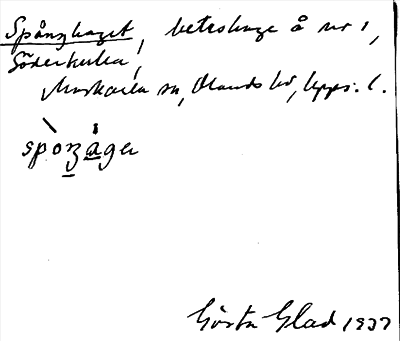 Spånghaget, beteshage å nr 1,
Söderkulla,
Markarla sn, Ölands hd, Upps. l.
spo̱nza̱ger
Gösta Glad 1937